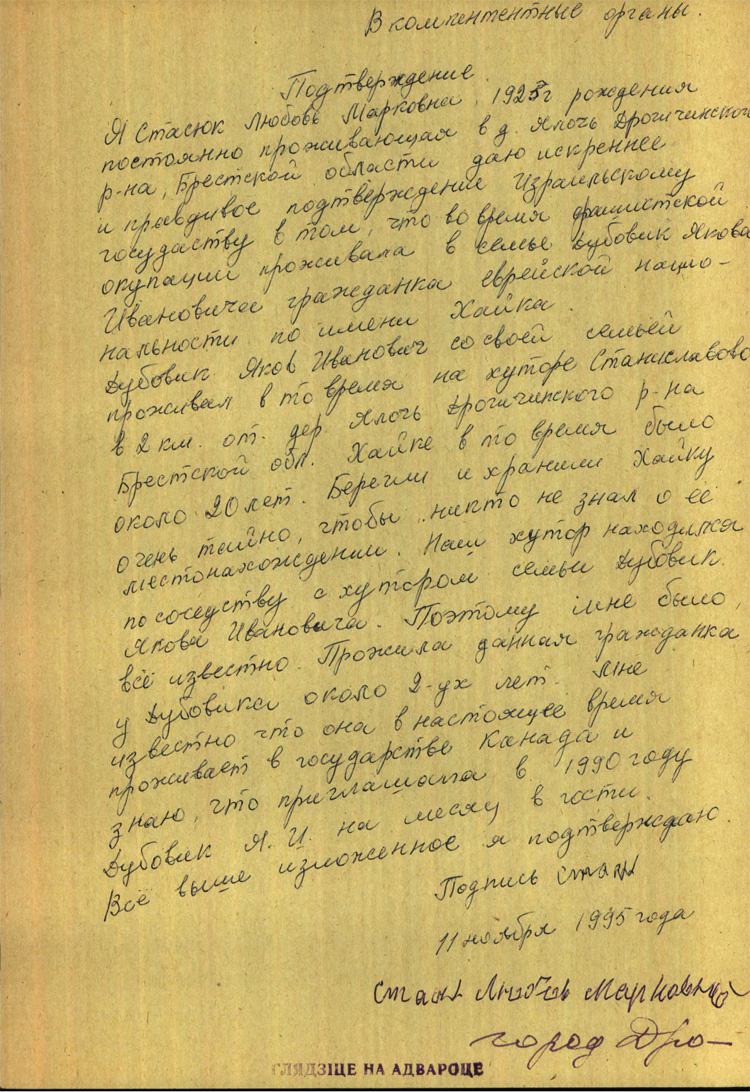 В компентентные органы.
Подтверждение
Я Стасюк Любовь Марковна, 1925 г рождения
постоянно проживающая в д. Ялочь Дрогичинского
р-на, Брестской области даю искреннее
и правдивое подтверждение Израильскому
государству в том, что во время фашистской
окупации проживала в семье Дубовик Якова
Ивановича гражданка еврейской нацио-
нальности по имени Хайка.
Дубовик Яков Иванович со своей семьей
проживал в то время на хуторе Станиславово
в 2 км. от. дер. Ялочь Дрогичинского р-на
Брестской обл. Хайке в то время было
около 20 лет. Берегли и хранили Хайку
очень тайно, чтобы никто не знал о её
местонахождении. Наш хутор находился
по соседству с хутором семьи Дубовик
Якова Ивановича. Поэтому мне было
всё известно. Прожила данная гражданка
у Дубовика около 2-ух лет. Мне
известно что она в настоящее время
проживает в государстве Канада и
знаю, что приглашала в 1990 году
Дубовик Я. И. на месяц в гости.
Всё выше изложенное я подтверждаю.
Подпись
11 ноября 1995 года
Любовь Марковна
город Дро-
ГЛЯДЗІЦЕ НА АДВАРОЦЕ